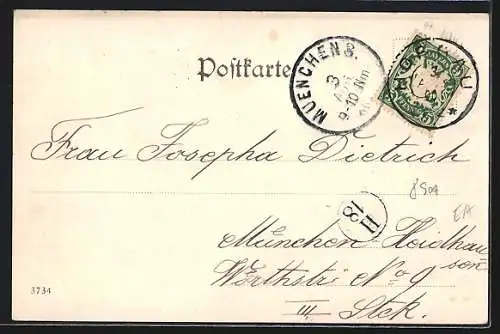 Postkarte
MUENCHEN 8.
3
9-10 Nm
Frau Josepha Dietrich
II 18
München-Haidhau
sen
Wörthstr. No 9
III. Stck.
3734